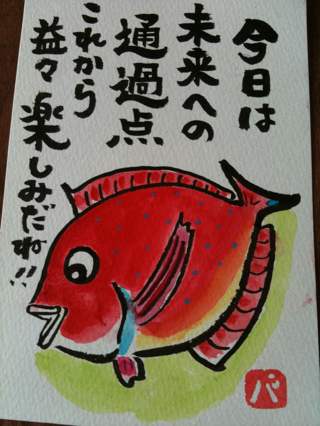 今日は
未来への
通過点
これから
益々楽しみだね!!
パ